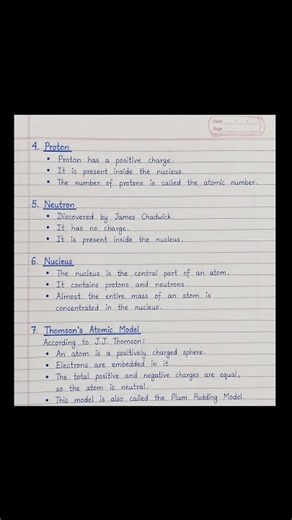 Date / /
Page
4. Proton
• Proton has a positive charge.
• It is present inside the nucleus.
• The number of protons is called the atomic number.
5. Neutron
• Discovered by James Chadwick
• It has no charge.
• It is present inside the nucleus.
6. Nucleus
• The nucleus is the central part of an atom.
• It contains protons and neutrons.
• Almost the entire mass of an atom is
concentrated in the nucleus.
7. Thomson's Atomic Model
According to J.J. Thomson:
• An atom is a positively charged sphere.
• Electrons are embedded in it.
• The total positive and negative charges are equal,
so the atom is neutral.
• This model is also called the Plum Pudding Model.